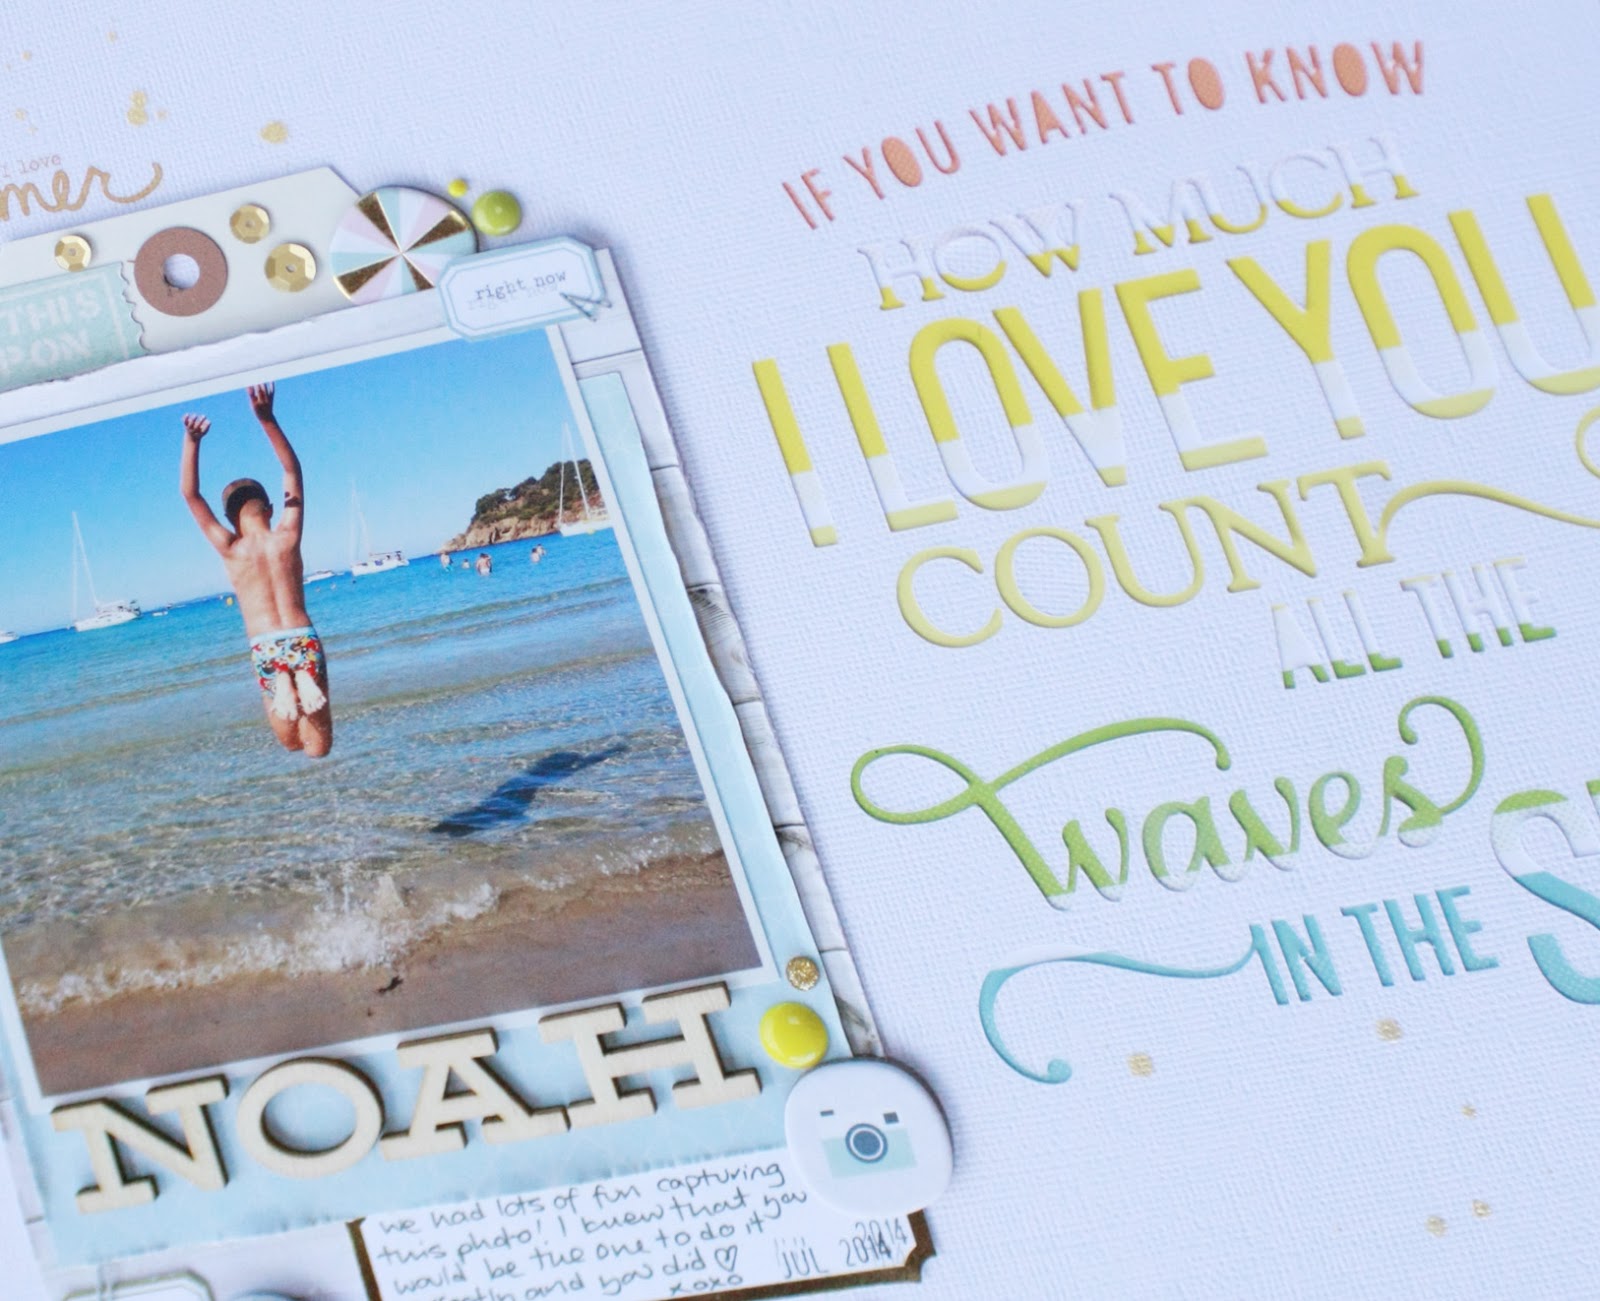 I love
mer
THIS
PON
right now
IF YOU WANT TO KNOW
HOW MUCH
I LOVE YOU
COUNT
ALL THE
waves
IN THE S
NOAH
we had lots of fun capturing
this photo! I knew that you
would be the one to do it
and you did
xoxo
JUL 2014
2014